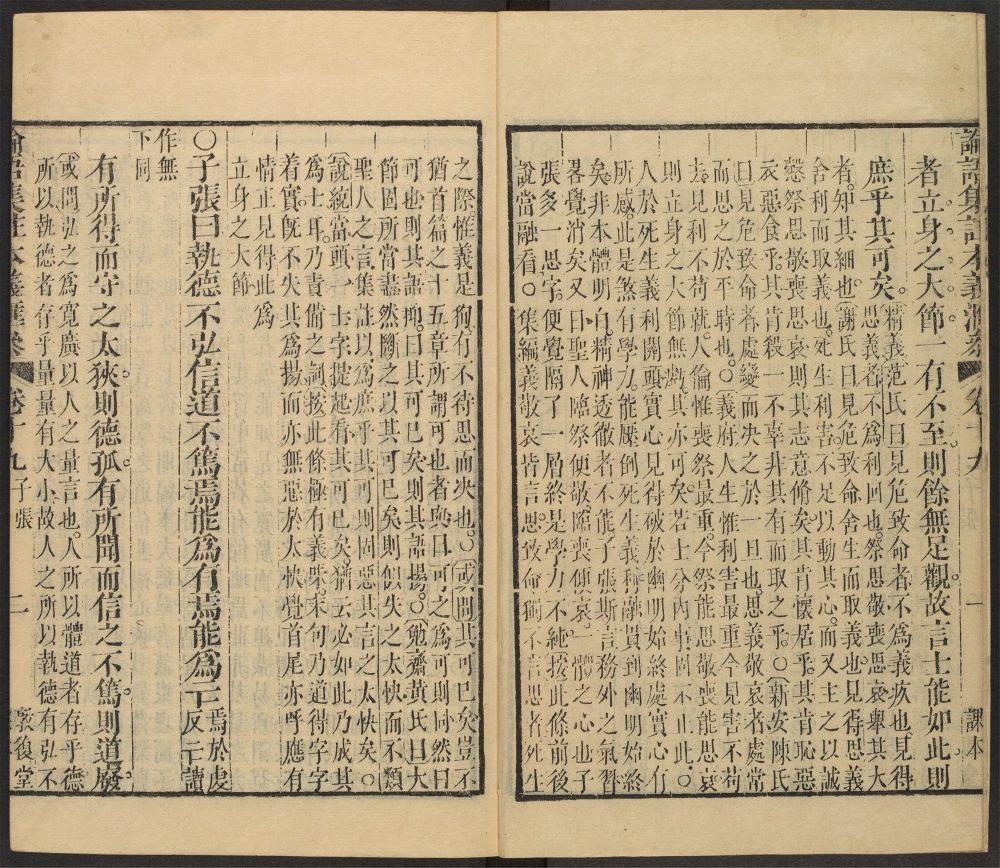 論語集註本義滙叅 卷十九 一 課本
者立身之大節一有不至則餘無足觀故言士能如此則
庶乎其可矣
精義范氏曰見危致命者不為義疚也見得
思義者不為利回也祭思敬喪思哀舉其大
者知其細也謝氏曰見危致命舍生而取義也見得思義
舍利而取義也死生利害不足以動其心而又主之以誠
慤祭思敬喪思哀則其志意脩矣其肯懷居乎其肯恥惡
衣惡食乎其肯殺一不辜非其有而取之乎○新安陳氏
曰見危致命者處變而決之於一旦也思義敬哀者處常
而思之於平時也○義府人生惟利害最重今見害不苟
去見利不苟就人倫惟喪祭最重今祭能思敬喪能思哀
則立身之大節無虧其亦可矣若士分內事固不止此○
人於死生義利關頭實心見得破於幽明始終處實心有
所感此是煞有學力能
死生義利
貫到幽明始終
矣非本體明白精神透徹者不能子張斯言務外之氣習
畧覺消矣又曰聖人臨祭便敬臨喪便哀
體之心也子
張多一思字便覺隔了一層終是學力不純按此條前後
說當融看○集編義敬哀皆言思致命獨不言思者死生
之際惟義是狥有不待思而决也○或問其可已矣豈不
猶首篇之十五章所謂可也者與曰可之為可則同然曰
可也則其語抑曰其可已矣則其語揚○勉齋黃氏曰大
節固所當盡然斷之以其可已矣則似失之太快而不類
聖人之言集註以為庶乎其可則固惡其言之太快矣○
說統當頭一士字提起看其可已矣猶云必如此乃成其
為士耳乃責備之詞按此條極有義味末句乃道得字字
着實旣不失其為揚而亦無惡於太快覺首尾亦呼應有
情正見得此為
立身之大節
○子張曰執德不弘信道不篤焉能為有焉能為亡
焉於虔
反亡讀
作無
下同
有所得而守之太狹則德孤有所聞而信之不篤則道廢
或問弘之為寬廣以人之量言也人所以體道者存乎德
所以執德者存乎量量有大小故人之所以執德有弘不
論語集註本義滙叅 卷十九 子張 二 敦復堂